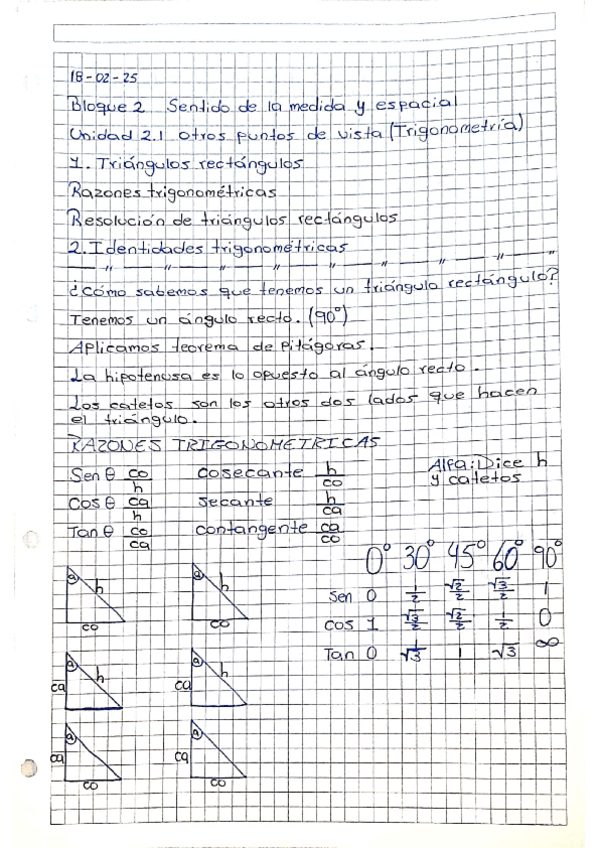 18-02-25
Bloque 2 Sentido de la medida y espacial
Unidad 2.1 Otros puntos de vista (Trigonometría)
1. Triángulos rectángulos
Razones trigonométricas
Resolución de triángulos rectángulos
2. Identidades trigonométricas
— " — " — " — " — " — " — " — " — " —
¿Cómo sabemos que tenemos un triángulo rectángulo?
Tenemos un ángulo recto. (90°)
Aplicamos teorema de Pitágoras.
La hipotenusa es lo opuesto al ángulo recto.
Los catetos son los otros dos lados que hacen
el triángulo.
RAZONES TRIGONOMETRICAS
Sen θ co/h cosecante h/co Alfa: Dice h
y catetos
Cos θ ca/h secante h/ca
Tan θ co/ca contangente ca/co
0° 30° 45° 60° 90°
Sen 0 1/2 √2/2 √3/2 1
cos 1 √3/2 √2/2 1/2 0
Tan 0 1/√3 1 √3 ∞
a h co
a h co
a ca h
a ca h
a ca co
a ca co